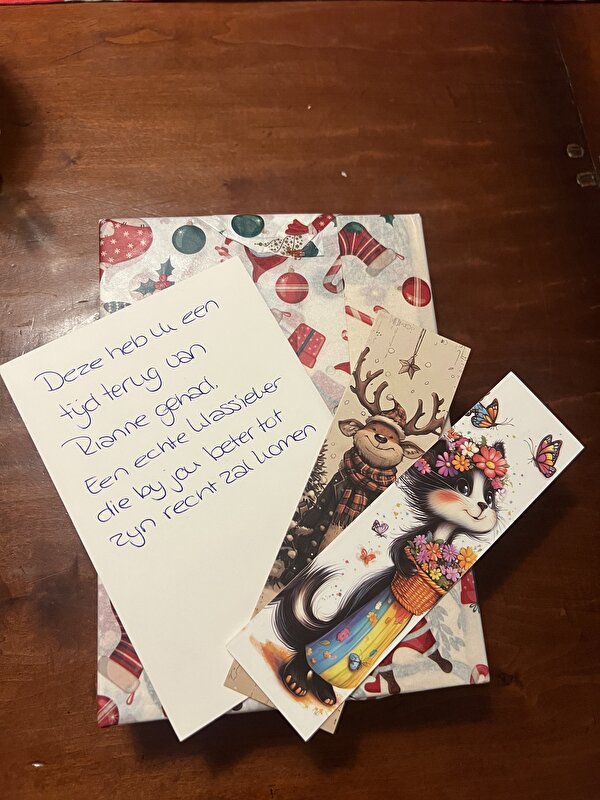 Deze heb ik een
tijd terug van
Rianne gehad.
Een echte klassieker
die by jou beter tot
zyn recht zal komen